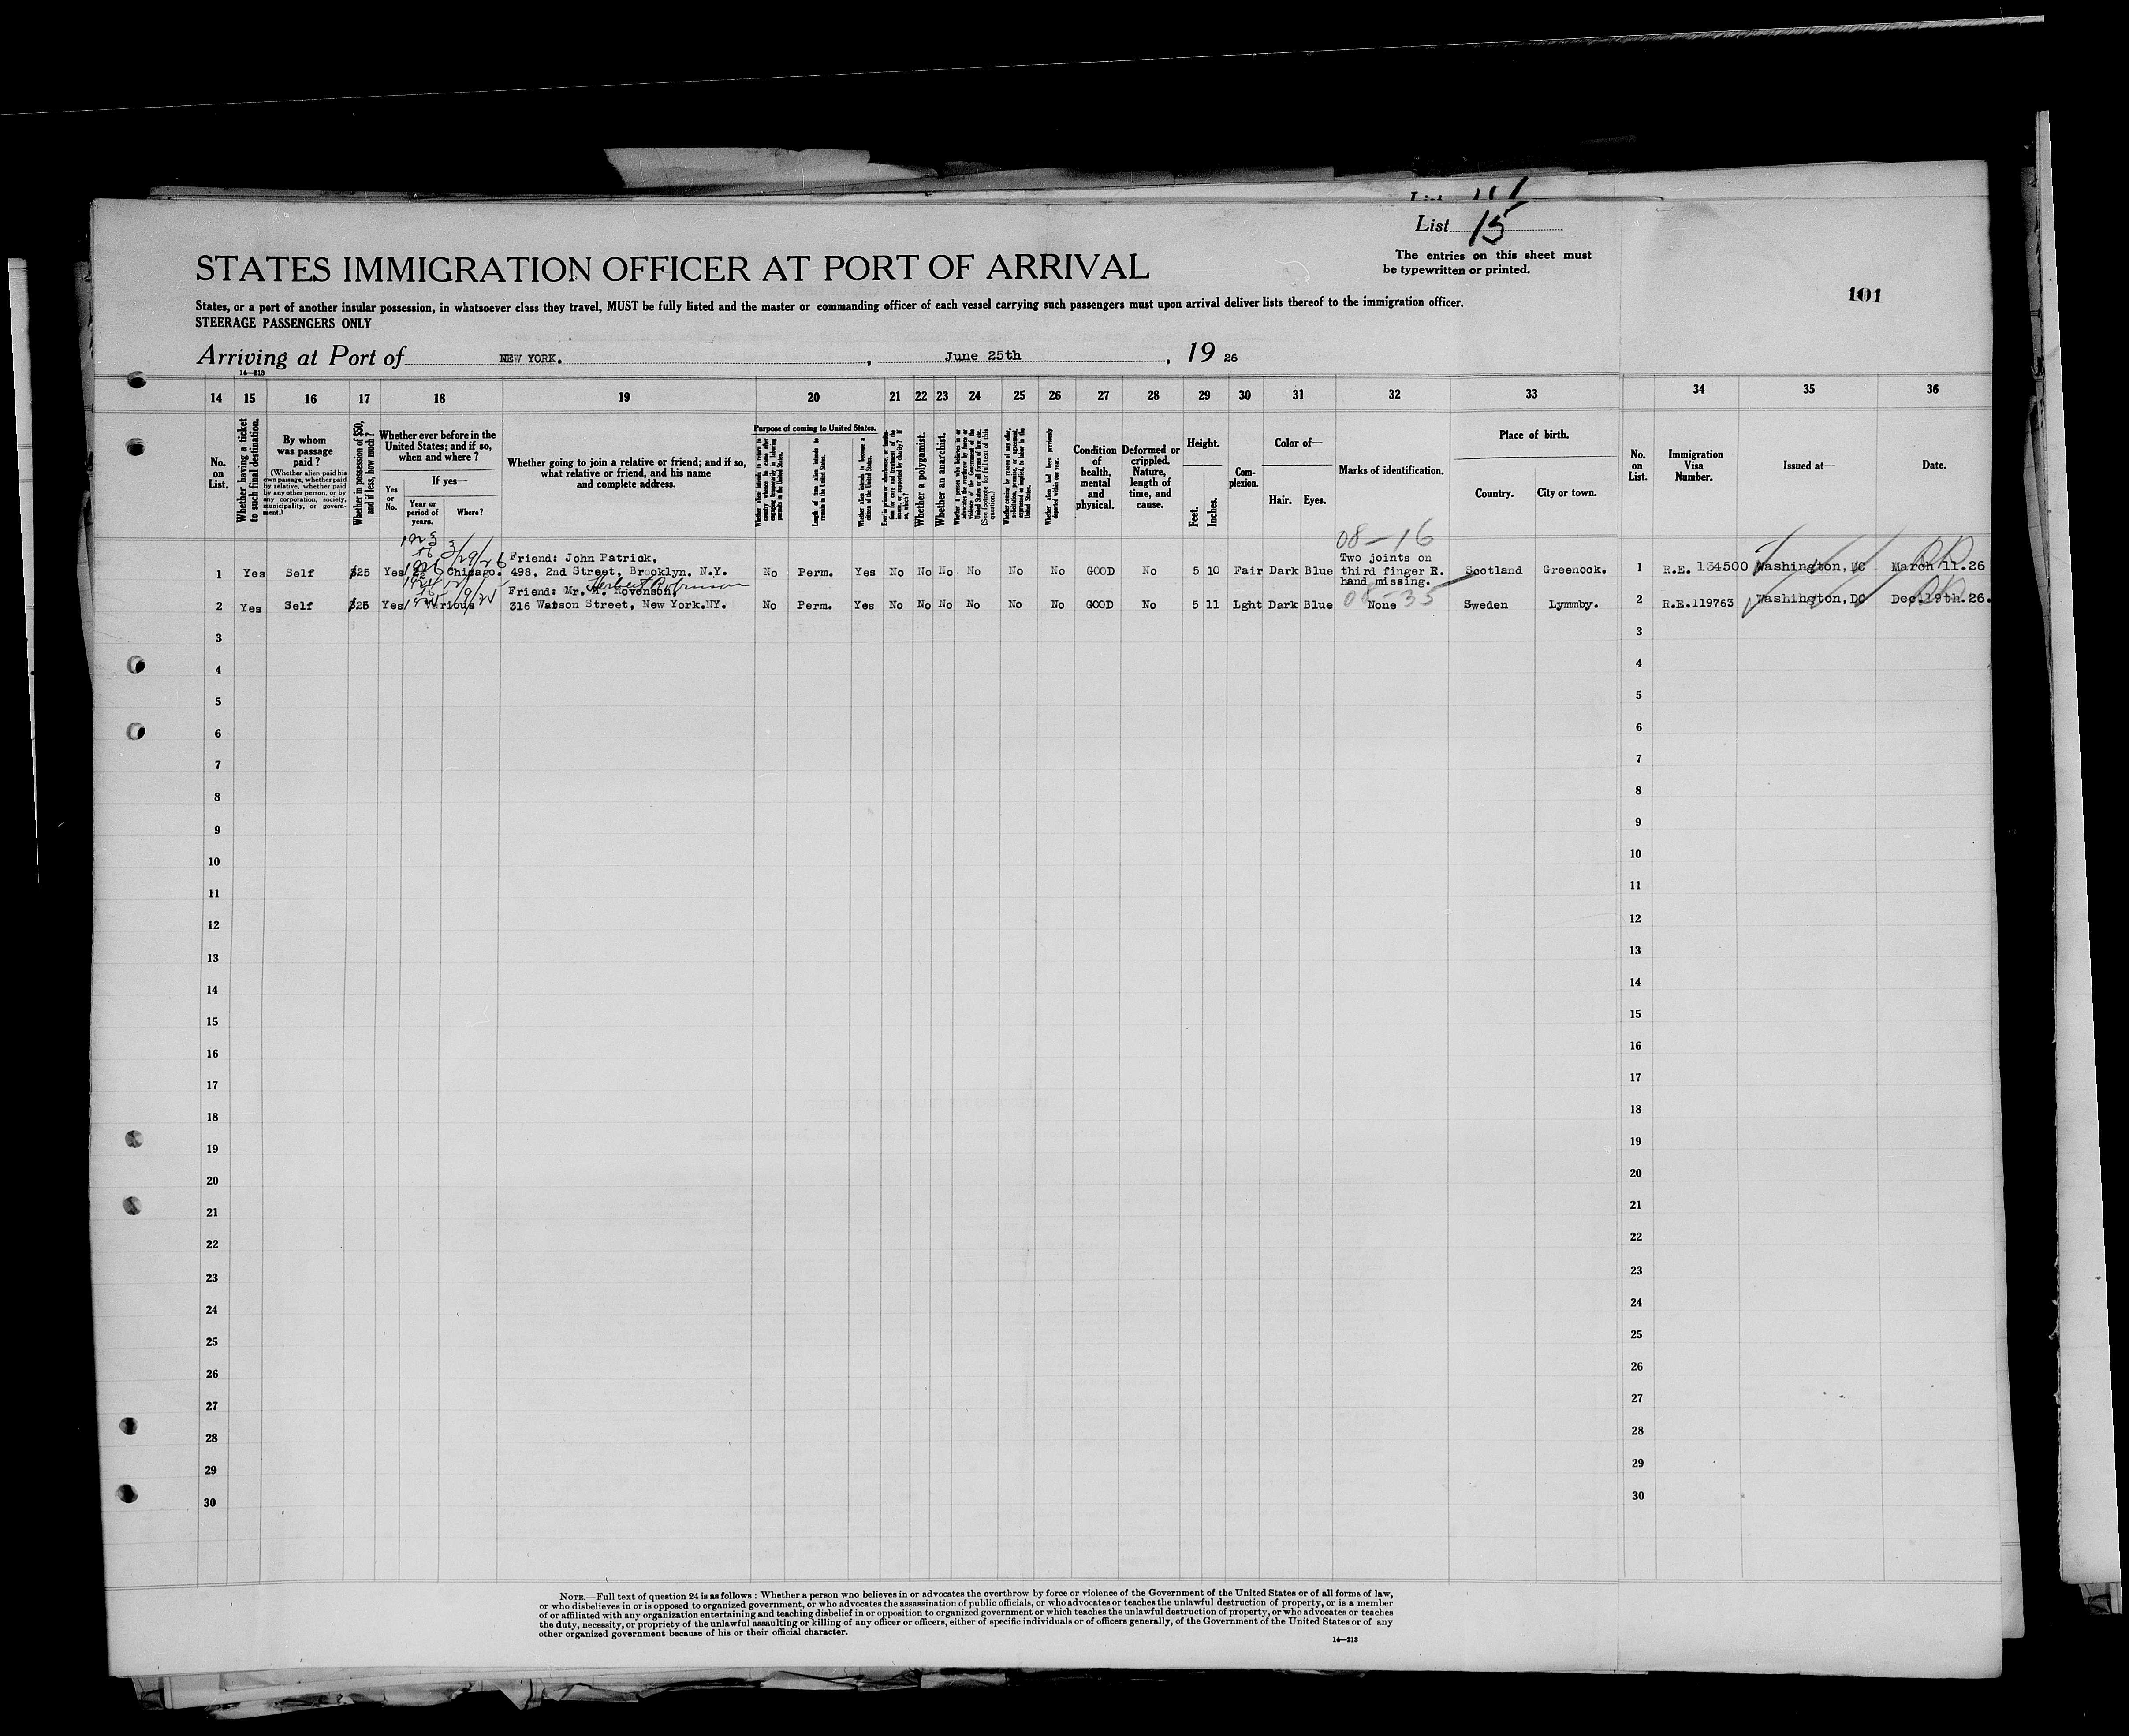 List 15
The entries on this sheet must
be typewritten or printed.
STATES IMMIGRATION OFFICER AT PORT OF ARRIVAL
101
States, or a port of another insular possession, in whatsoever class they travel, MUST be fully listed and the master or commanding officer of each vessel carrying such passengers must upon arrival deliver lists thereof to the immigration officer.
STEERAGE PASSENGERS ONLY
Arriving at Port of NEW YORK. , June 25th , 19 26
14—213
14 15 16 17 18 19 20 21 22 23 24 25 26 27 28 29 30 31 32 33 34 35 36
No. on List.
Whether having a ticket to such final destination.
By whom was passage paid?
(Whether alien paid his own passage, whether paid by relative, whether paid by any other person, or by any corporation, society, municipality, or government.)
Whether in possession of $50, and if less, how much?
Whether ever before in the United States; and if so, when and where?
Yes or No.
If yes—
Year or period of years.
Where?
Whether going to join a relative or friend; and if so, what relative or friend, and his name and complete address.
Purpose of coming to United States.
Length of time alien intends to remain in the United States.
Whether alien intends to become a citizen of the United States.
Whether a polygamist.
Whether an anarchist.
(See footnote for full text of this question.)
Whether alien had been previously deported within one year.
Condition of health, mental and physical.
Deformed or crippled. Nature, length of time, and cause.
Height.
Feet.
Inches.
Complexion.
Color of—
Hair.
Eyes.
Marks of identification.
Place of birth.
Country.
City or town.
No. on List.
Immigration Visa Number.
Issued at—
Date.
1923 3/29/26
08—16
1 Yes Self $25 Yes 1926 Chicago. Friend: John Patrick, 498, 2nd Street, Brooklyn. N.Y. No Perm. Yes No No No No No No GOOD No 5 10 Fair Dark Blue Two joints on third finger R. hand missing. Scotland Greenock. 1 R.E. 134500 Washington, DC March 11.26
Herbert Robinson
2 Yes Self $25 Yes Various Friend: Mr. 316 Watson Street, New York.NY. No Perm. Yes No No No No No No GOOD No 5 11 Lght Dark Blue None Sweden Lymmby. 2 R.E.119763 Washington, DC Dec.19th.26.
3 3
4 4
5 5
6 6
7 7
8 8
9 9
10 10
11 11
12 12
13 13
14 14
15 15
16 16
17 17
18 18
19 19
20 20
21 21
22 22
23 23
24 24
25 25
26 26
27 27
28 28
29 29
30 30
NOTE.—Full text of question 24 is as follows: Whether a person who believes in or advocates the overthrow by force or violence of the Government of the United States or of all forms of law,
or who disbelieves in or is opposed to organized government, or who advocates the assassination of public officials, or who advocates or teaches the unlawful destruction of property, or is a member
of or affiliated with any organization entertaining and teaching disbelief in or opposition to organized government or which teaches the unlawful destruction of property, or who advocates or teaches
the duty, necessity, or propriety of the unlawful assaulting or killing of any officer or officers, either of specific individuals or of officers generally, of the Government of the United States or of any
other organized government because of his or their official character.
14—213